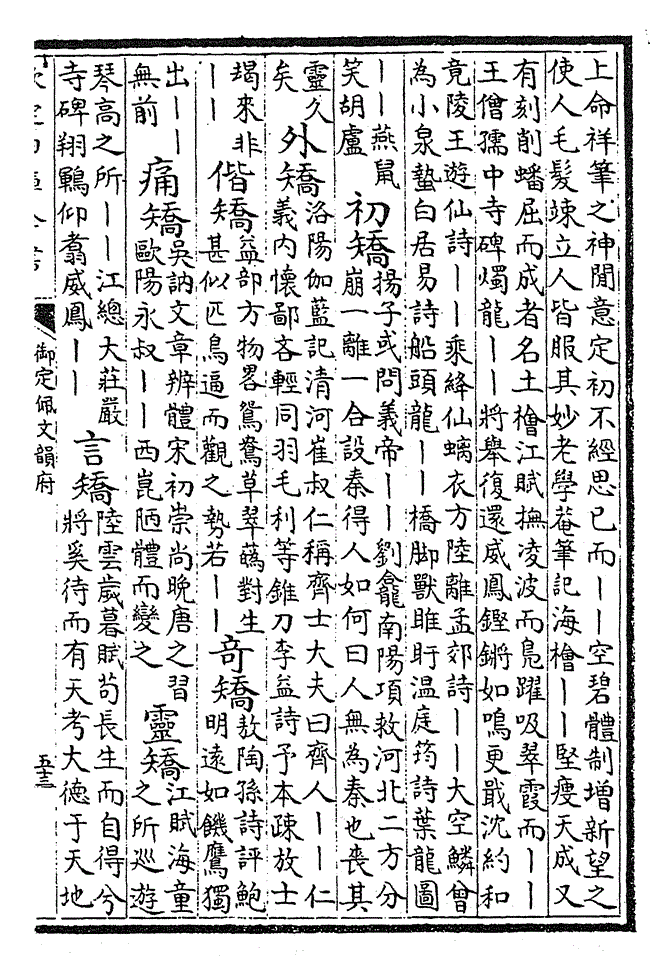 上命祥筆之神閒意定初不經思已而丨丨空碧體制增新望之
使人毛髮竦立人皆服其妙老學菴筆記海檜丨丨堅瘦天成又
有刻削蟠屈而成者名土檜江賦撫凌波而鳧躍吸翠霞而丨丨
王僧孺中寺碑燭龍丨丨將舉復還威鳳鏗鏘如鳴更戢沈約和
竟陵王遊仙詩丨丨乘絳仙螭衣方陸離孟郊詩丨丨大空鱗曾
為小泉蟄白居易詩船頭龍丨丨橋脚獸睢盱溫庭筠詩葉龍圖
丨丨燕鼠
笑胡盧
初矯
揚子或問義帝丨丨劉龕南陽項救河北二方分
崩一離一合設秦得人如何曰人無為秦也喪其
靈久
矣
外矯
洛陽伽藍記清河崔叔仁稱齊士大夫曰齊人丨丨仁
義內懷鄙吝輕同羽毛利等錐刀李益詩予本疎放士
朅來非
丨丨
偕矯
益部方物畧鴛鴦草翠蘤對生
甚似匹鳥逼而觀之勢若丨丨
奇矯
敖陶孫詩評鮑
明遠如饑鷹獨
出丨丨
無前
痛矯
吳訥文章辨體宋初崇尚晚唐之習
歐陽永叔丨丨西崑陋體而變之
靈矯
江賦海童
之所巡遊
琴高之所丨丨江總大莊嚴
寺碑翔鶤仰翥威鳳丨丨
言矯
陸雲歲暮賦苟長生而自得兮
將奚待而有天考大德于天地
欽定四庫全書
御定佩文韻府
五十三